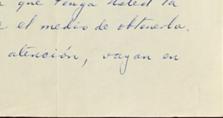 que tenga usted la
el medio de obtenerla.
atención, vayan en